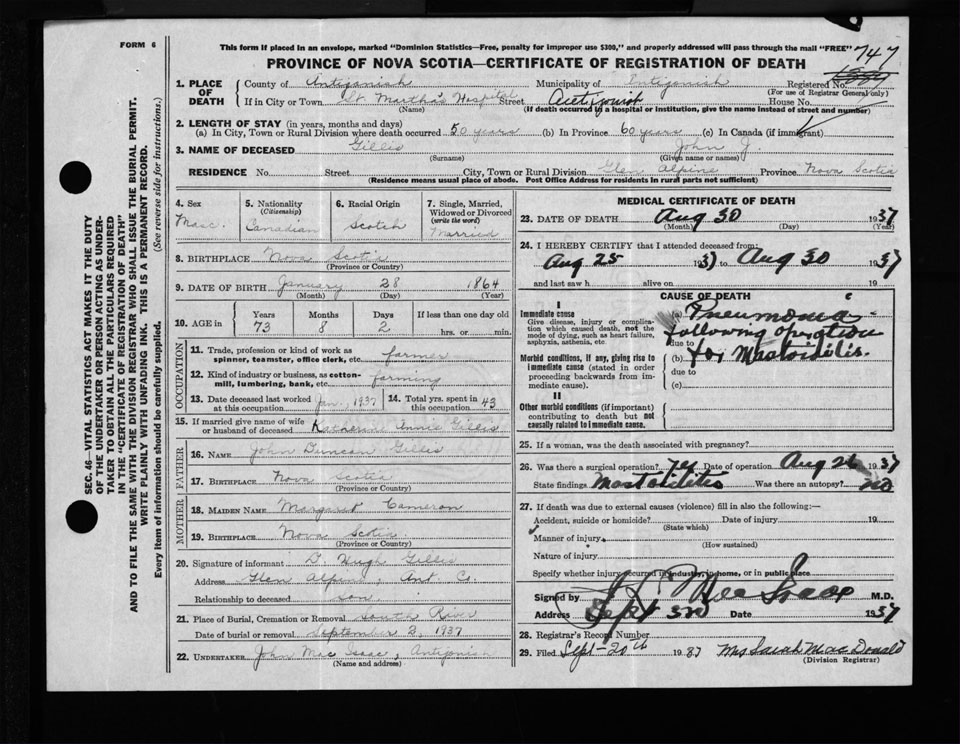 FORM 6
This form if placed in an envelope, marked "Dominion Statistics—Free, penalty for improper use $300," and properly addressed will pass through the mail "FREE" 747
PROVINCE OF NOVA SCOTIA—CERTIFICATE OF REGISTRATION OF DEATH
1. PLACE OF DEATH County of Antigonish Municipality of Antigonish Registered No.
(For use of Registrar General only)
If in City or Town St. Martha's Hospital Street Antigonish House No.
(Name) (If death occurred in a hospital or institution, give the name instead of street and number)
2. LENGTH OF STAY (in years, months and days)
(a) In City, Town or Rural Division where death occurred 50 years (b) In Province 60 years (c) In Canada (if immigrant)
3. NAME OF DECEASED Gillis John J.
(Surname) (Given name or names)
RESIDENCE No. Street City, Town or Rural Division Glen Alpine Province Nova Scotia
(Residence means usual place of abode. Post Office Address for residents in rural parts not sufficient)
4. Sex 5. Nationality (Citizenship) 6. Racial Origin 7. Single, Married, Widowed or Divorced (write the word)
Masc. Canadian Scotch Married
8. BIRTHPLACE Nova Scotia
(Province or Country)
9. DATE OF BIRTH January 28 1864
(Month) (Day) (Year)
10. AGE in Years Months Days If less than one day old
73 8 2 hrs. or min.
OCCUPATION
11. Trade, profession or kind of work as spinner, teamster, office clerk, etc. farmer
12. Kind of industry or business, as cotton-mill, lumbering, bank, etc. farming
13. Date deceased last worked at this occupation Jan., 1937 14. Total yrs. spent in this occupation 43
15. If married give name of wife or husband of deceased Katherine Annie Gillis
FATHER
16. Name John Duncan Gillis
17. Birthplace Nova Scotia
(Province or Country)
MOTHER
18. Maiden Name Margaret Cameron
19. Birthplace Nova Scotia
(Province or Country)
20. Signature of informant D. Hugh Gillis
Address Glen Alpine, Ant Co.
Relationship to deceased son.
21. Place of Burial, Cremation or Removal South River
Date of burial or removal September 2, 1937
22. Undertaker John Mac Isaac, Antigonish
(Name and address)
MEDICAL CERTIFICATE OF DEATH
23. DATE OF DEATH Aug 30 1937
(Month) (Day) (Year)
24. I HEREBY CERTIFY that I attended deceased from:
Aug 25 1937 to Aug 30 1937
and last saw h alive on 19
CAUSE OF DEATH
I
Immediate cause (a) Pneumonia
Give disease, injury or complication which caused death, not the mode of dying, such as heart failure, asphyxia, asthenia, etc.
following operation
due to
Morbid conditions, if any, giving rise to immediate cause (stated in order proceeding backwards from immediate cause).
(b) for Mastoiditis.
due to
(c)
II
Other morbid conditions (if important) contributing to death but not causally related to immediate cause.
25. If a woman, was the death associated with pregnancy?
26. Was there a surgical operation? yes Date of operation Aug 26 1937
State findings Mastoiditis Was there an autopsy? no
27. If death was due to external causes (violence) fill in also the following:—
Accident, suicide or homicide? Date of injury 19
(State which)
Manner of injury
(How sustained)
Nature of injury
Specify whether injury occurred in industry, in home, or in public place
Signed by Mac Isaac M.D.
Address Sept 3rd Date 1937
28. Registrar's Record Number
29. Filed Sept-20th 1937 Mrs Sarah MacDonald
(Division Registrar)
SEC. 46—VITAL STATISTICS ACT MAKES IT THE DUTY
OF THE UNDERTAKER OR PERSON ACTING AS UNDER-
TAKER TO OBTAIN ALL THE PARTICULARS REQUIRED
IN THE "CERTIFICATE OF REGISTRATION OF DEATH"
AND TO FILE THE SAME WITH THE DIVISION REGISTRAR WHO SHALL ISSUE THE BURIAL PERMIT.
WRITE PLAINLY WITH UNFADING INK. THIS IS A PERMANENT RECORD.
Every item of information should be carefully supplied. (See reverse side for instructions.)